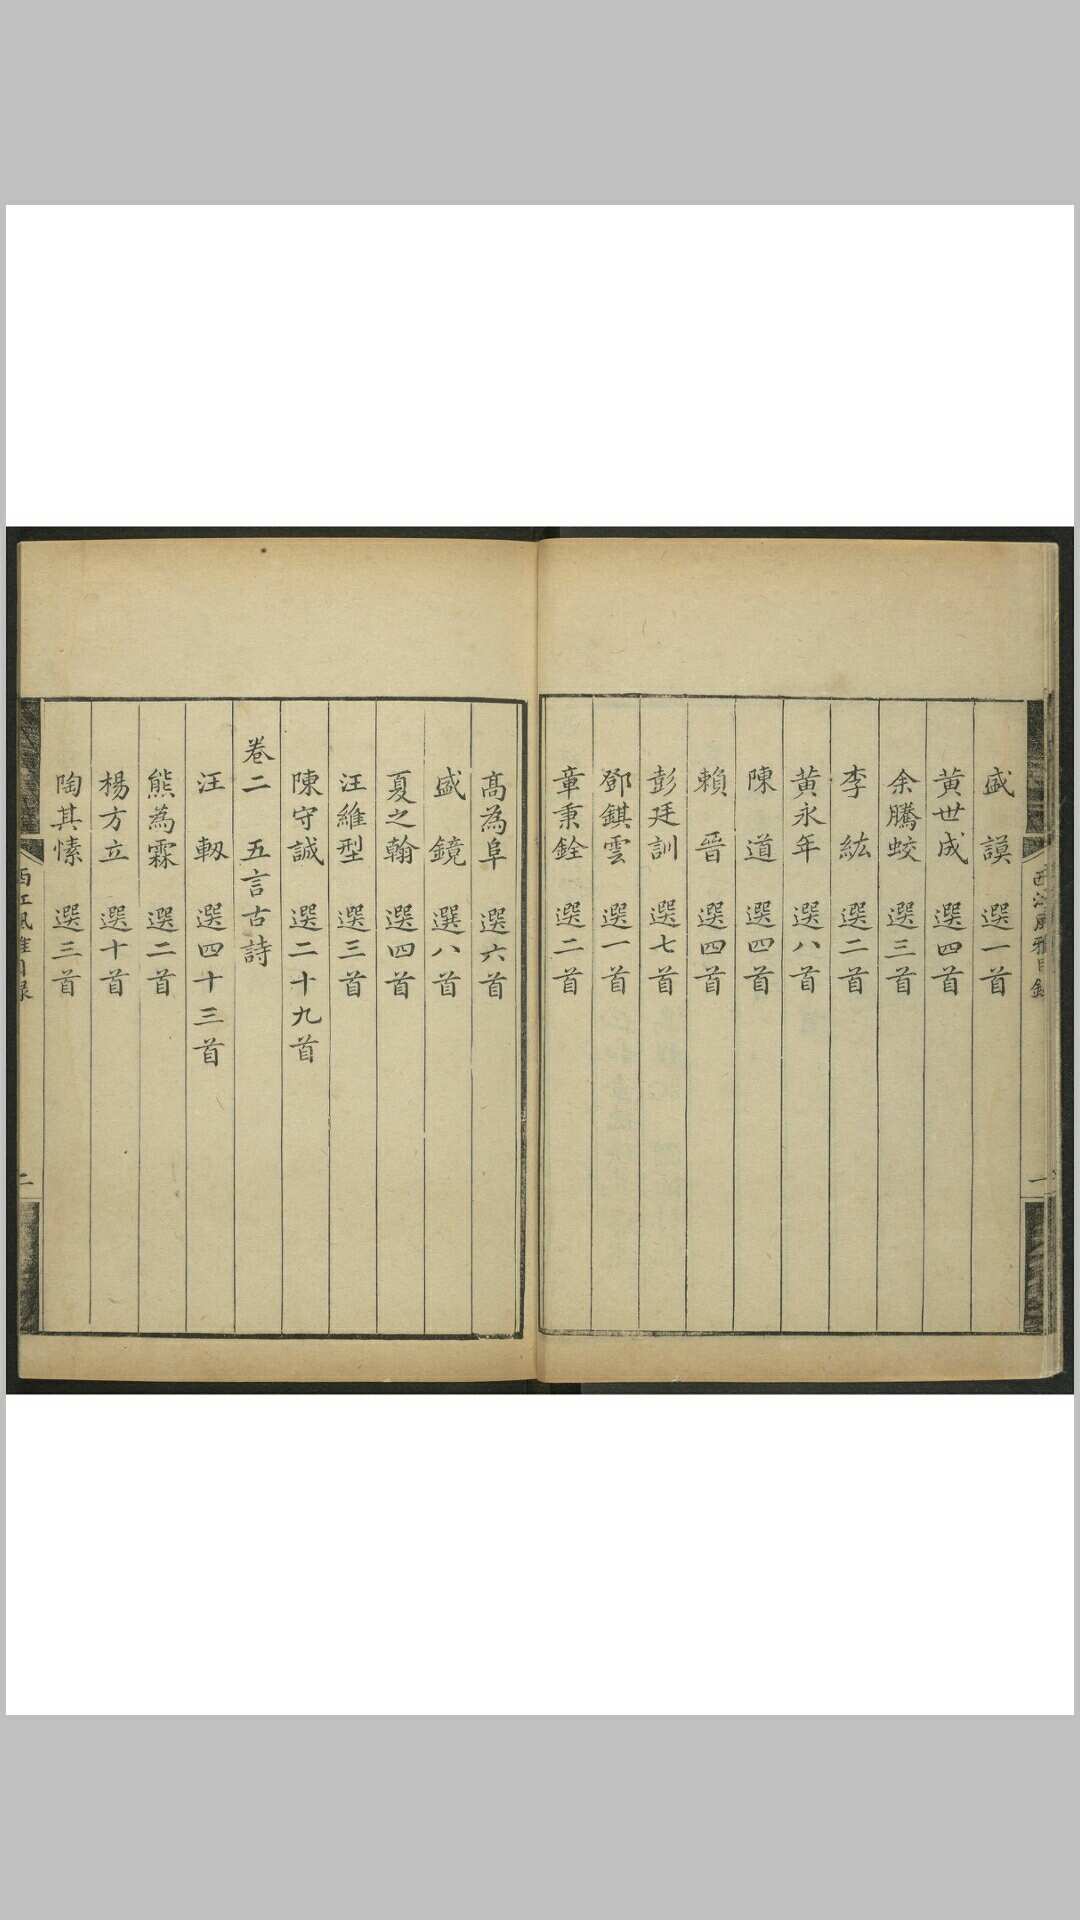 西江風雅目錄
一
盛 謨 選一首
黄世成 選四首
余騰蛟 選三首
李 紘 選二首
黄永年 選八首
陳 道 選四首
賴 晉 選四首
彭廷訓 選七首
鄧錤雲 選一首
章秉銓 選二首
髙為阜 選六首
盛 鏡 選八首
夏之翰 選四首
汪維型 選三首
陳守誠 選二十九首
卷二 五言古詩
汪 軔 選四十三首
熊為霖 選二首
楊方立 選十首
陶其愫 選三首
西江風雅目錄
二